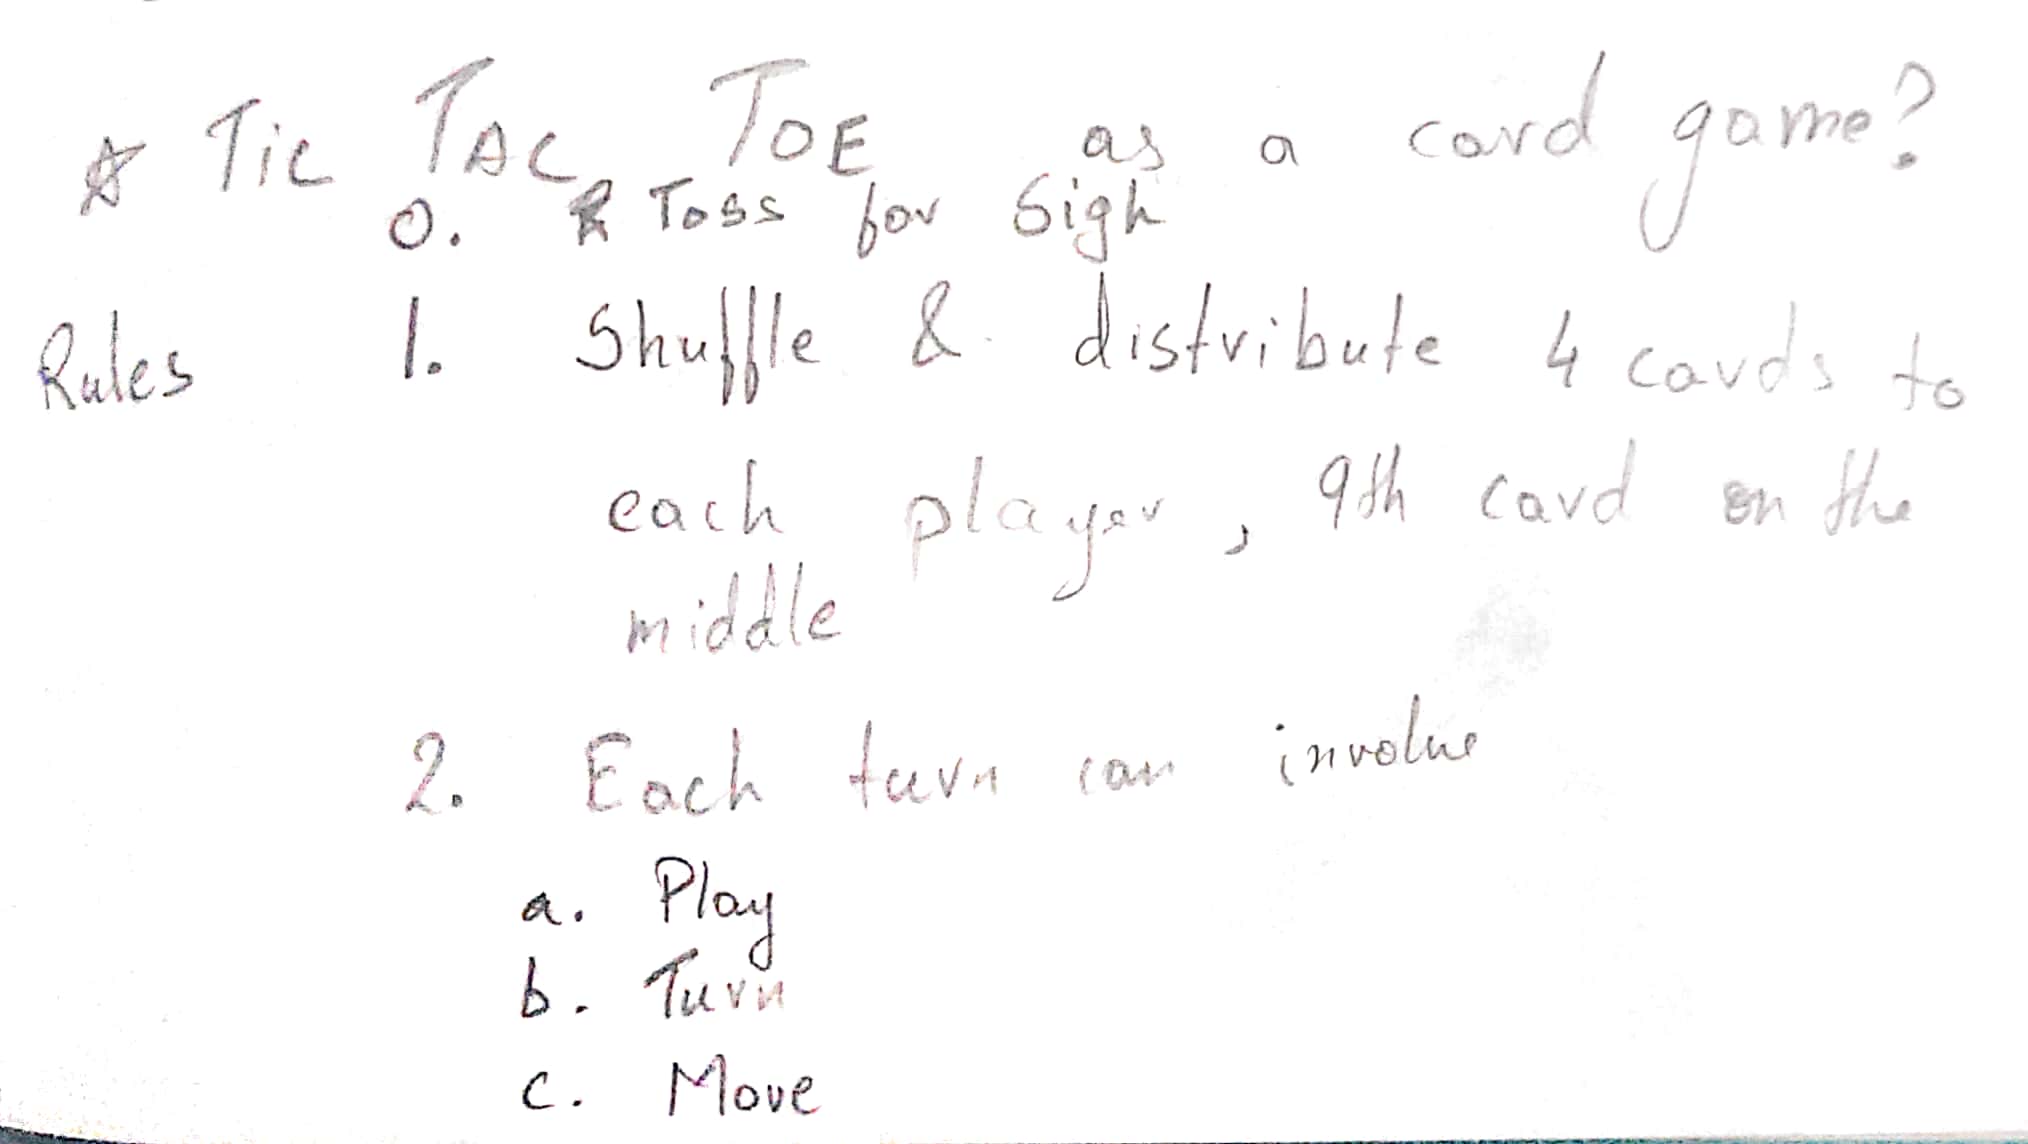 ☆ Tic TAC TOE as a card game?
0. Toss for Sigh
Rules 1. Shuffle & distribute 4 cards to
each player, 9th card on the
middle
2. Each turn can involve
a. Play
b. Turn
c. Move